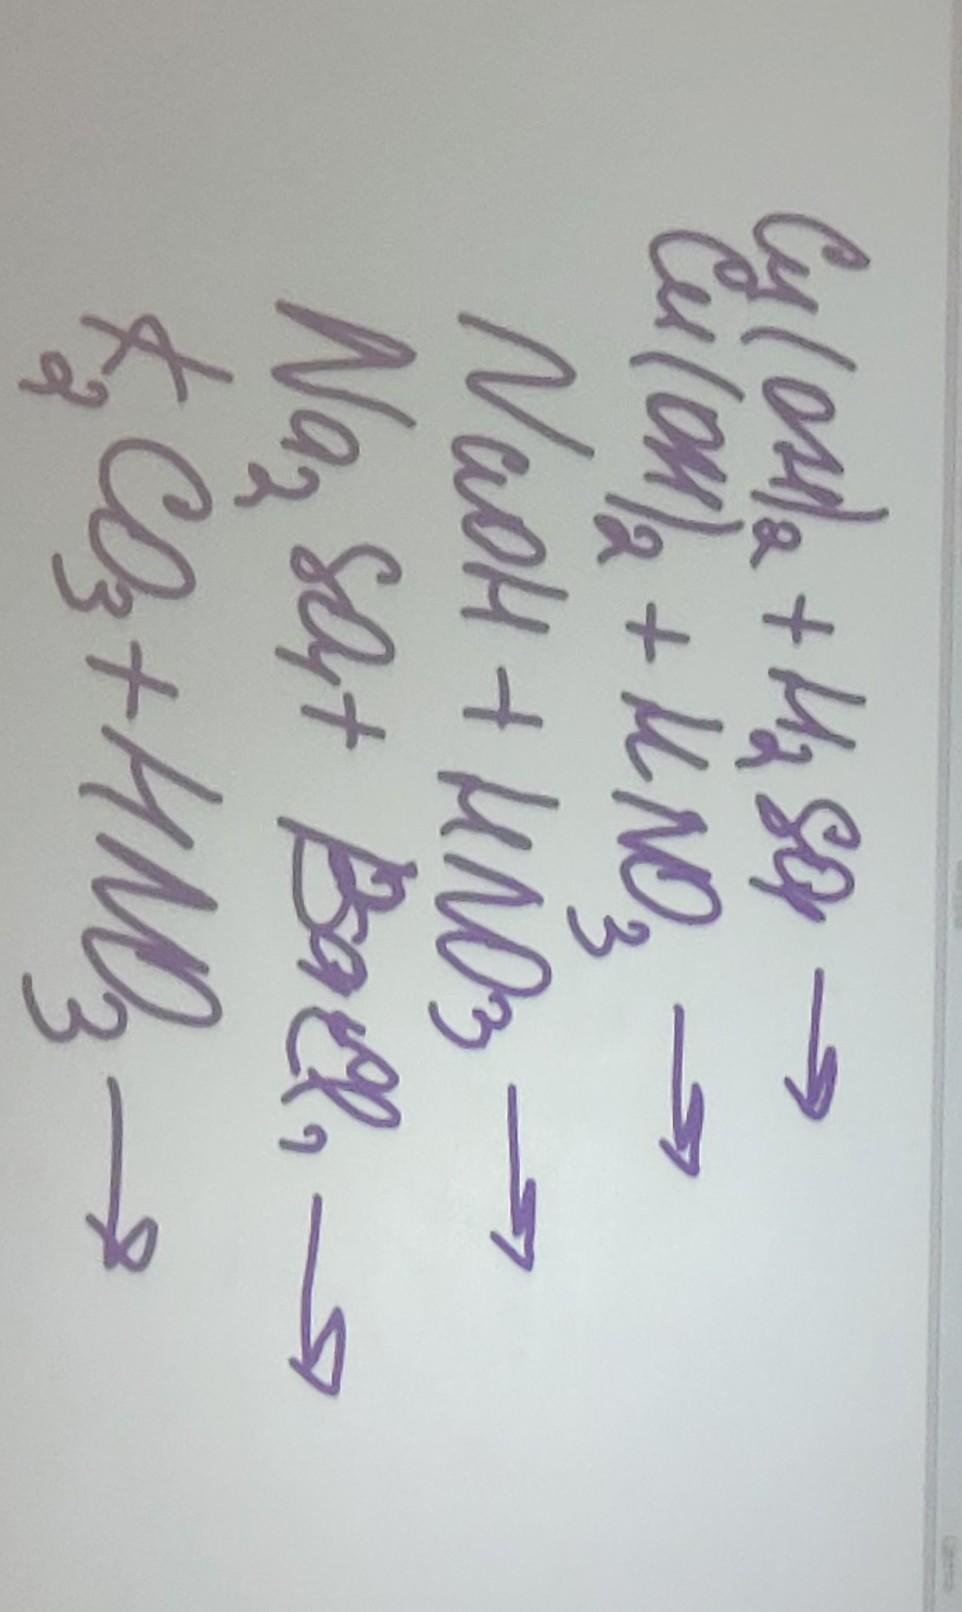 Cu(OH)₂ + H₂SO₄ →
Cu(OH)₂ + HNO₃ →
NaOH + HNO₃ →
Na₂SO₄ + BaCl₂ →
K₂CO₃ + HNO₃ →